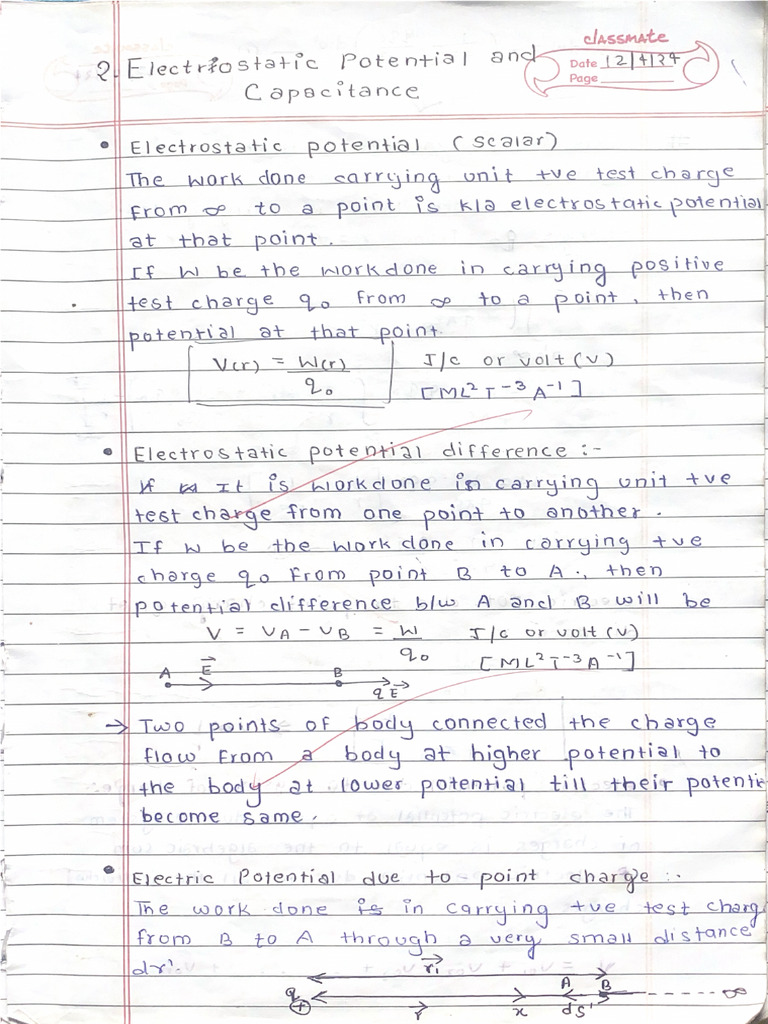 classmate
Date 12/4/24
Page
2. Electriostatic Potential and
Capacitance
• Electrostatic potential (scalar)
The work done carrying unit +ve test charge
from ∞ to a point is k/a electrostatic potential
at that point.
If W be the workdone in carrying positive
test charge q₀ from ∞ to a point, then
potential at that point.
V(r) = W(r)/q₀ J/c or volt (v)
[ML²T⁻³A⁻¹]
• Electrostatic potential difference :-
It is workdone in carrying unit +ve
test charge from one point to another.
If W be the work done in carrying +ve
charge q₀ from point B to A., then
potential difference b/w A and B will be
V = VA - VB = W/q₀ J/c or volt (v)
[ML²T⁻³A⁻¹]
A E⃗ B qE⃗
→ Two points of body connected the charge
flow from a body at higher potential to
the body at lower potential till their potenti
become same.
• Electric Potential due to point charge :-
The work done is in carrying +ve test charg
from B to A through a very small distance
dr'.
r⃗₁
q + A B ∞
r⃗ x ds'